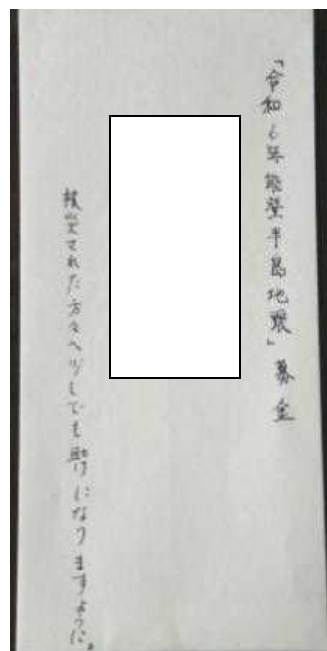 「令和6年能登半島地震」募金
被災された方々へ少しでも助けになりますように。